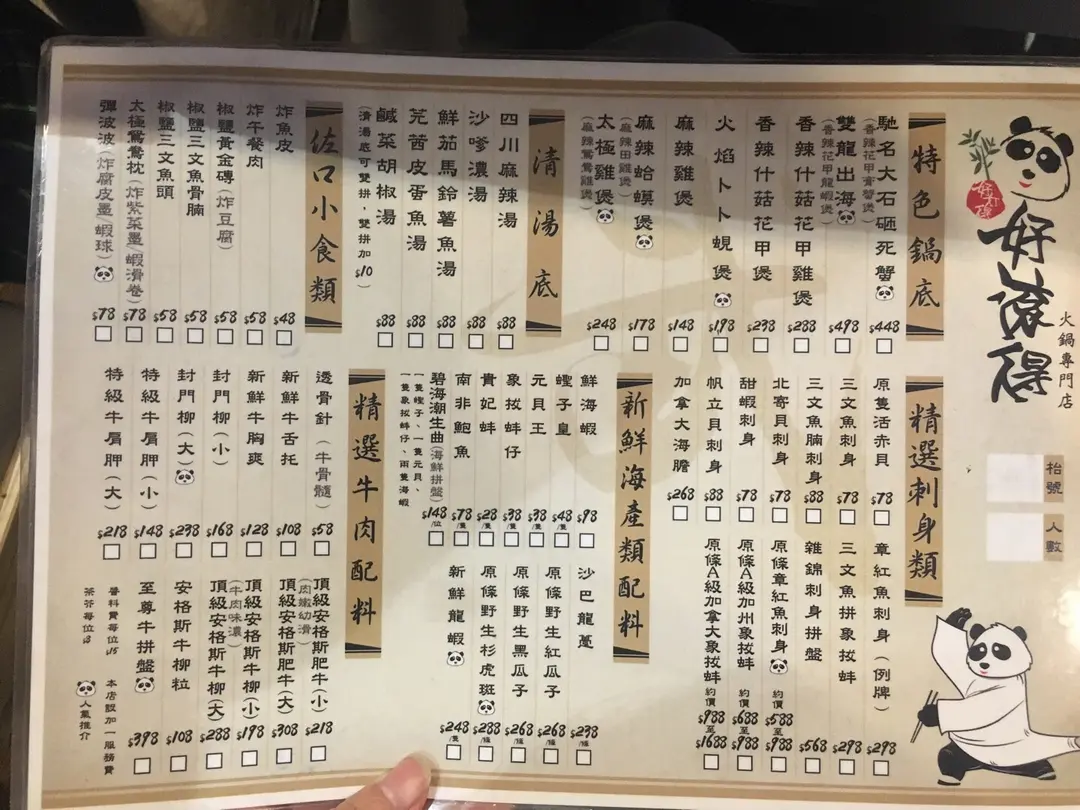 好滾得
火鍋專門店
枱號
人數
特色鍋底
馳名大石砸死蟹
(香辣花甲膏蟹煲)
$448
雙龍出海
(香辣花甲龍蝦煲)
$498
香辣什菇花甲雞煲
$288
香辣什菇花甲煲
$238
火焰卜卜蜆煲
$198
麻辣雞煲
$148
麻辣蛤蟆煲
(麻辣田雞煲)
$178
太極雞煲
(麻辣鴛鴦雞煲)
$248
清湯底
四川麻辣湯
$88
沙嗲濃湯
$88
鮮茄馬鈴薯魚湯
$88
芫茜皮蛋魚湯
$88
鹹菜胡椒湯
$88
(清湯底可雙拼，雙拼加$10)
佐口小食類
炸魚皮
$48
炸午餐肉
$58
椒鹽黃金磚(炸豆腐)
$58
椒鹽三文魚骨腩
$58
椒鹽三文魚頭
$58
太極鴛鴦枕(炸紫菜墨/蝦滑卷)
$78
彈波波(炸腐皮墨/蝦球)
$78
精選刺身類
原隻活赤貝
$78
三文魚刺身
$78
三文魚腩刺身
$88
北寄貝刺身
$78
甜蝦刺身
$78
帆立貝刺身
$88
加拿大海膽
$268
章紅魚刺身(例牌)
$298
三文魚拼象拔蚌
$298
雜錦刺身拼盤
$568
原條章紅魚刺身
約價
$588至$988
原條A級加州象拔蚌
約價
$688至$988
原條A級加拿大象拔蚌
約價
$988至$1688
新鮮海產類配料
鮮海蝦
$98
蟶子皇
$48/隻
元貝王
$38/隻
象拔蚌仔
$38/隻
貴妃蚌
$28/隻
南非鮑魚
$78/隻
碧海潮生曲(海鮮拼盤)
$148/位
一隻蟶子、一隻元貝、
一隻象拔蚌仔、兩隻海蝦
沙巴龍躉
$238/條
原條野生紅瓜子
$268/條
原條野生黑瓜子
$268/條
原條野生杉虎斑
$288/條
新鮮龍蝦
$248/隻
精選牛肉配料
透骨針(牛骨髓)
$58
新鮮牛舌托
$108
新鮮牛胸爽
$128
封門柳(小)
$168
封門柳(大)
$238
特級牛肩胛(小)
$148
特級牛肩胛(大)
$218
頂級安格斯肥牛(小)
(肉嫩幼滑)
$218
頂級安格斯肥牛(大)
$308
頂級安格斯牛柳(小)
(牛肉味濃)
$198
頂級安格斯牛柳(大)
$288
安格斯牛柳粒
$108
至尊牛拼盤
$398
醬料費每位$15
本店設加一服務費
茶芥每位$8
人氣推介